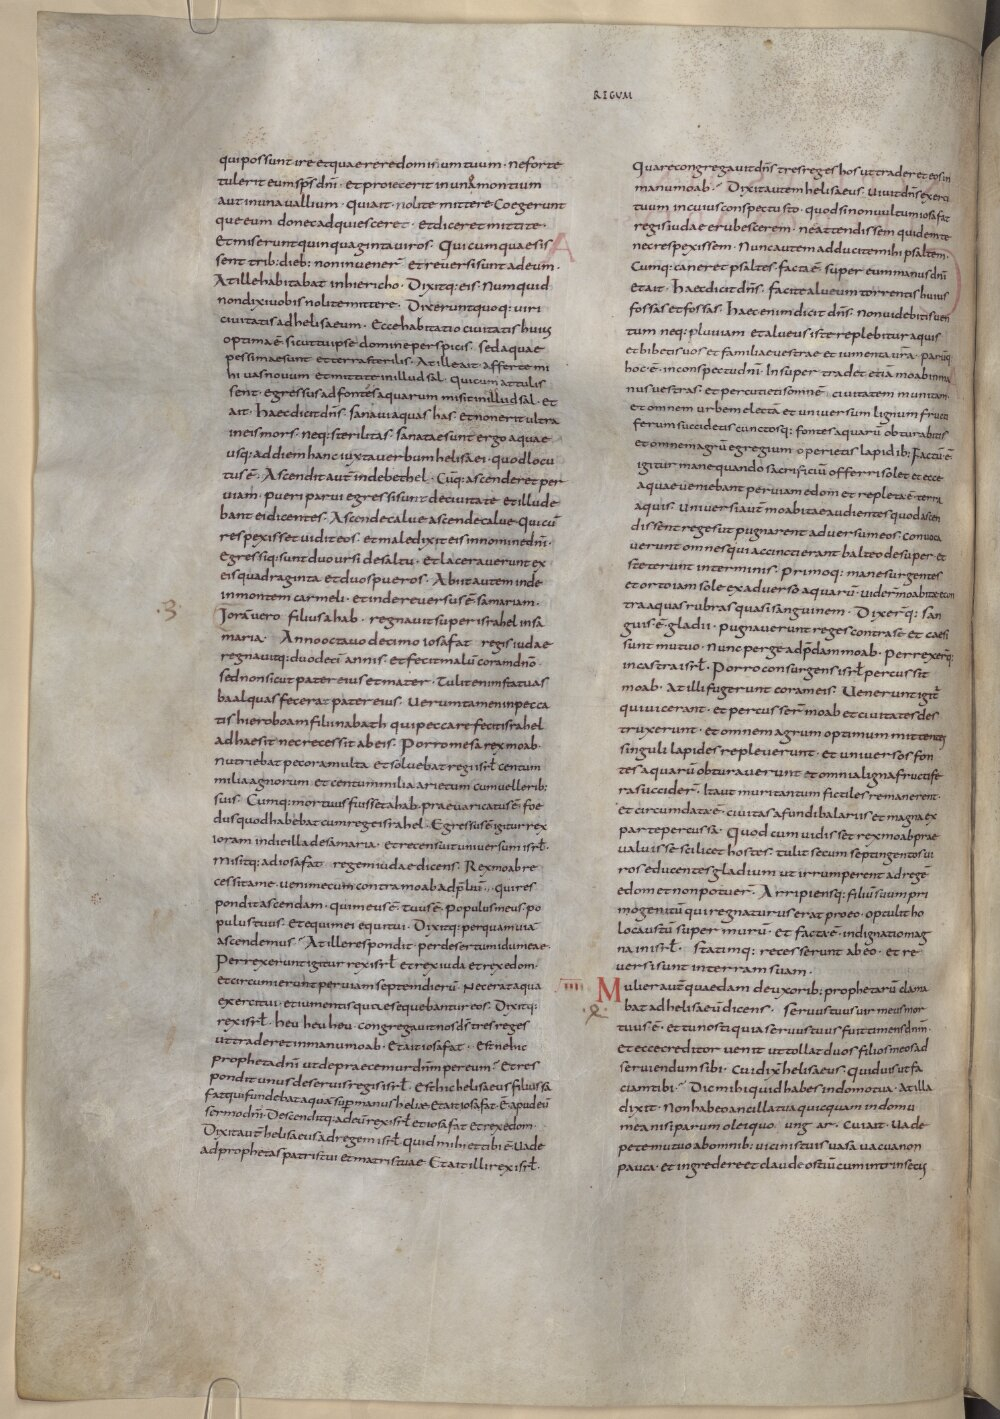 REGUM
qui possunt ire et quaerere dominum tuum· Ne forte
tulerit eum sp̄s dn̄i· et proiecerit in unum montium
aut in una vallium· Qui ait· nolite mittere· Coegerunt
que eum donec adquiesceret· et diceret mittite·
Et miserunt quinquaginta viros· Qui cum quaesis
sent trib: dieb: non invener̄· et reversi sunt ad eum·
At ille habitabat in hiericho· Dixitq: eis· Numquid
non dixi vobis nolite mittere· Dixerunt quoq: viri
civitatis ad helisaeum· Ecce habitatio civitatis huius
optima ē· sicut tu ipse domine perspicis· sed aquae
pessimae sunt et terra sterilis· At ille ait· afferte mi
hi vas novum et mittite in illud sal· Qui cum attulis
sent· egressus ad fontes aquarum misit in illud sal· et
ait· Haec dicit dn̄s· sanavi aquas has· et non erit ultra
in eis mors· neq: sterilitas· Sanatae sunt ergo aquae
usq: ad diem hanc iuxta verbum helisaei· quod locu
tus ē· Ascendit aut̄ inde bethel· Cūq: ascenderet per
viam· pueri parvi egressi sunt de civitate· et illude
bant ei dicentes· Ascende calve ascende calve· Qui cū
respexisset vidit eos· et maledixit eis in nomine dn̄i·
Egressiq: sunt duo ursi de saltu· Et laceraverunt ex
eis quadraginta et duos pueros· Abiit autem inde
in montem carmeli· et inde reversus ē· samariam·
·3· Iorā vero filius ahab· regnavit super israhel in sa
maria· Anno octavo decimo iosafat regis iudae
regnavitq: duodecī annis· et fecit malū coram dn̄o·
sed non sicut pater eius et mater· Tulit enim statuas
baal quas fecerat pater eius· Verumtamen in pecca
tis hieroboam filii nabath qui peccare fecit israhel
adhaesit nec recessit ab eis· Porro mesa rex moab·
nutriebat pecora multa· et solvebat regi isrl̄ centum
milia agnorum· et centum milia arietum cum vellerib:
suis· Cumq: mortuus fuisset ahab· praevaricatus ē· foe
dus quod habebat cum rege israhel· Egressus ē igitur rex
ioram in die illa de samaria· et recensuit universum isrl̄·
Misitq: ad iosafat regem iudae dicens· Rex moab re
cessit a me· veni mecum contra moab ad p̄liū·· qui res
pondit ascendam· qui meus ē· tuus ē· Populus meus· po
pulus tuus· Et equi mei equi tui· Dixitq: per quam via
ascendemus· At ille respondit· per desertum idumeae·
Perrexerunt igitur rex isrl̄ et rex iuda et rex edom·
et circumierunt per viam septem dierū· Nec erat aqua
exercitui· et iumentis quae sequebantur eos· Dixitq:
rex isrl̄· heu heu heu· congregavit nos dn̄s tres reges
ut traderet in manu moab· Et ait iosafat·· Est ne hic
propheta dn̄i ut depraecemur dn̄m per eum· Et res
pondit unus de servis regis isrl̄· Est hic helisaeus filius sa
fat qui fundebat aquā sup manus heliae· Et ait iosafat· Ē apud eū
sermo dn̄i· Descenditq: ad eū rex isrl̄ et iosafat et rex edom·
Dixit aut̄ helisaeus ad regem isrl̄ quid mihi et tibi ē· Vade
ad prophetas patris tui et matris tuae· Et ait illi rex isrl̄·
Quare congregavit dn̄s tres reges hos ut traderet eos in
manu moab· Dixit autem helisaeus· Vivit dn̄s exerci
tuum in cuius conspectu sto· quod si non vultum iosafat
regis iudae erubescerem· ne attendissem quidem te
nec respexissem· Nunc autem adducite mihi psaltem·
Cumq: caneret psaltes· facta ē super eum manus dn̄i
et ait· Haec dicit dn̄s· Facite alveum torrentis huius
fossas et fossas· Haec enim dicit dn̄s· Non videbitis ven
tum neq: pluviam et alveus iste replebitur aquis
et bibetis vos et familiae vestrae et iumenta vr̄a· parūq:
hoc ē· in conspectu dn̄i· Insuper tradet etiā moab in ma
nus vestras· et percutietis omnē civitatem munitam
et omnem urbem electā et universum lignum fructi
ferum succidetis cunctosq: fontes aquarū obturabitis
et omnem agrū egregium operietis lapidib: Factū ē
igitur mane quando sacrificiū offerri solet et ecce
aquae veniebant per viam edom et repleta ē terra
aquis· Universi aut̄ moabitae audientes quod ascen
dissent reges ut pugnarent adversum eos· convoca
verunt omnes qui accincti erant balteo desuper· et
steterunt in terminis· Primoq: mane surgentes
et orto iam sole ex adverso aquarū· vider̄ moabitae con
tra aquas rubras quasi sanguinem· Dixer̄q: san
guis ē gladii· pugnaverunt reges contra se et caesi
sunt mutuo· nunc perge ad p̄dam moab· Perrexer̄q:
in castra isrl̄· Porro consurgens isrl̄ percussit
moab· At illi fugerunt coram eis· Venerunt igit̄
qui vicerant· et percusser̄ moab et civitates des
truxerunt· et omnem agrum optimum mittentes
singuli lapides repleverunt· et universos fon
tes aquarū obturaverunt et omnia ligna fructife
ra succider̄· Ita ut muri tantum fictiles remanerent·
et circumdata ē· civitas a fundibalariis et magna ex
parte percussa· Quod cum vidisset rex moab prae
valuisse scilicet hostes· tulit secum septingentos vi
ros educentes gladium ut irrumperent ad regē
edom et non potuer̄· Arripiensq: filiū suum pri
mogenitū qui regnaturus erat pro eo· optulit ho
locaustū super murū· et facta ē· indignatio mag
na in isrl̄· statimq: recesserunt ab eo· et re
versi sunt in terram suam·
IIII· Mulier aut̄ quaedam de uxorib: prophetarū clama
bat ad helisaeū dicens· servus tuus vir meus mor
tuus ē· et tu nosti quia servus tuus fuit timens dn̄m·
Et ecce creditor venit ut tollat duos filios meos ad
serviendum sibi· Cui dix̄ helisaeus· Quid vis ut fa
ciam tibi· Dic mihi quid habes in domo tua· At illa
dixit· Non habeo ancilla tua quicquam in domo
mea nisi parum olei quo ungar· Cui ait· Vade
pete mutuo ab omnib: vicinis tuis vasa vacua non
pauca· et ingredere et claude ostiū cum intrinsecus